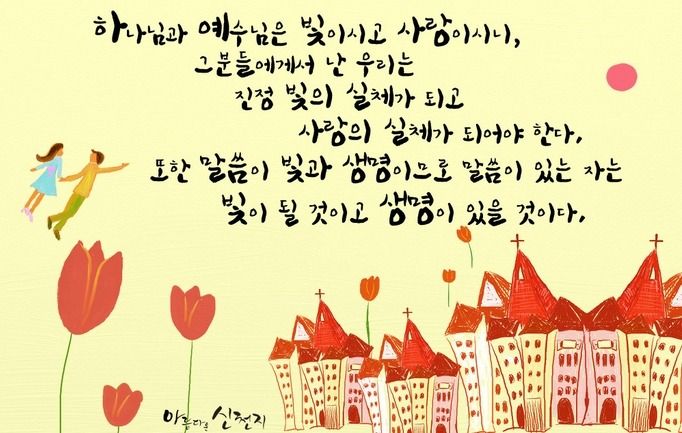 하나님과 예수님은 빛이시고 사랑이시니,
그분들에게서 난 우리는
진정 빛의 실체가 되고
사랑의 실체가 되어야 한다,
또한 말씀이 빛과 생명이므로 말씀이 있는 자는
빛이 될 것이고 생명이 있을 것이다,
아름다운 신천지